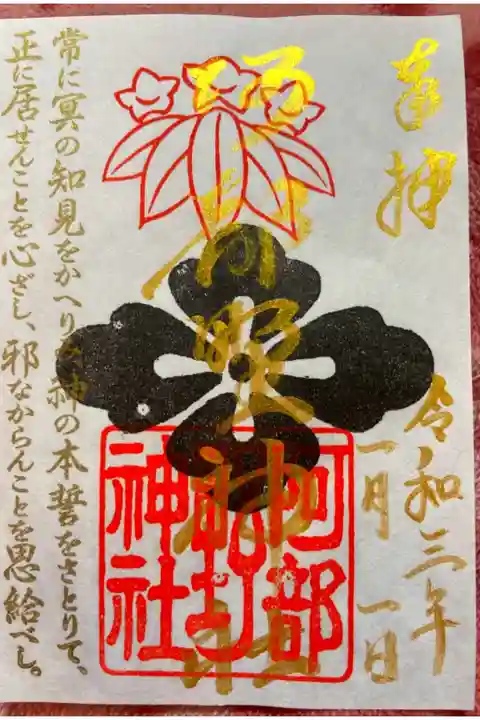 奉拝
令和三年
一月一日
阿部野神社
阿部
野
神社
常に冥の知見をかへりみ神の本誓をさとりて、
正に居せんことを心ざし、邪なからんことを思給べし。